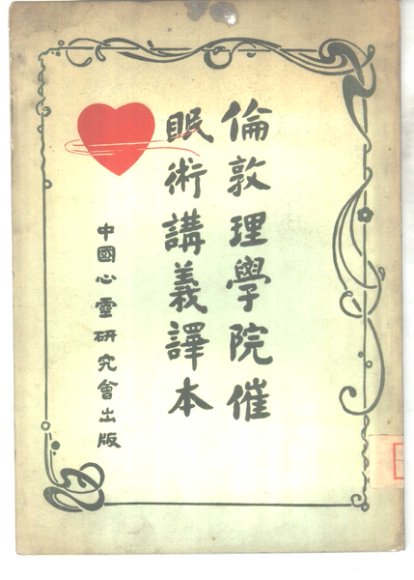 倫敦理學院催
眠術講義譯本
中國心霊研究會出版